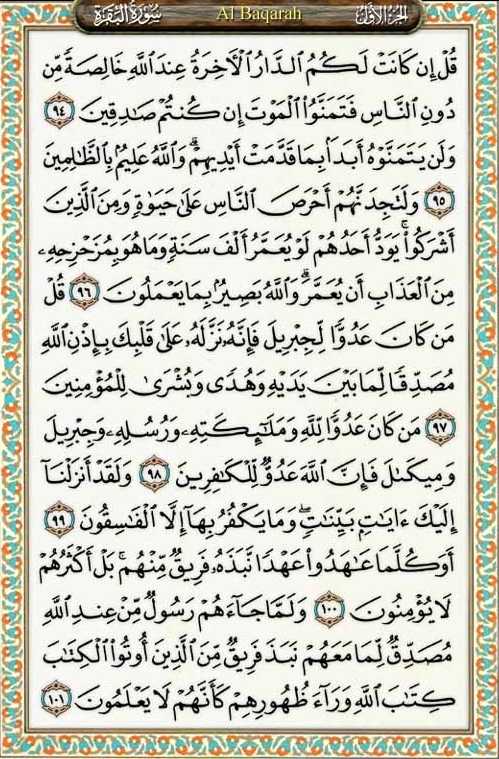 الجزء الأول Al Baqarah سورة البقرة
قُلْ إِن كَانَتْ لَكُمُ ٱلدَّارُ ٱلْأَخِرَةُ عِندَ ٱللَّهِ خَالِصَةً مِّن
دُونِ ٱلنَّاسِ فَتَمَنَّوُا۟ ٱلْمَوْتَ إِن كُنتُمْ صَادِقِينَ ٩٤
وَلَن يَتَمَنَّوْهُ أَبَدًۢا بِمَا قَدَّمَتْ أَيْدِيهِمْ ۗ وَٱللَّهُ عَلِيمٌۢ بِٱلظَّالِمِينَ
٩٥ وَلَتَجِدَنَّهُمْ أَحْرَصَ ٱلنَّاسِ عَلَىٰ حَيَوٰةٍ وَمِنَ ٱلَّذِينَ
أَشْرَكُوا۟ ۚ يَوَدُّ أَحَدُهُمْ لَوْ يُعَمَّرُ أَلْفَ سَنَةٍ وَمَا هُوَ بِمُزَحْزِحِهِۦ
مِنَ ٱلْعَذَابِ أَن يُعَمَّرَ ۗ وَٱللَّهُ بَصِيرٌۢ بِمَا يَعْمَلُونَ ٩٦ قُلْ
مَن كَانَ عَدُوًّا لِّجِبْرِيلَ فَإِنَّهُۥ نَزَّلَهُۥ عَلَىٰ قَلْبِكَ بِإِذْنِ ٱللَّهِ
مُصَدِّقًا لِّمَا بَيْنَ يَدَيْهِ وَهُدًى وَبُشْرَىٰ لِلْمُؤْمِنِينَ
٩٧ مَن كَانَ عَدُوًّا لِّلَّهِ وَمَلَٰٓئِكَتِهِۦ وَرُسُلِهِۦ وَجِبْرِيلَ
وَمِيكَىٰلَ فَإِنَّ ٱللَّهَ عَدُوٌّ لِّلْكَافِرِينَ ٩٨ وَلَقَدْ أَنزَلْنَآ
إِلَيْكَ ءَايَاتٍۭ بَيِّنَاتٍ ۖ وَمَا يَكْفُرُ بِهَآ إِلَّا ٱلْفَاسِقُونَ ٩٩
أَوَكُلَّمَا عَاهَدُوا۟ عَهْدًا نَّبَذَهُۥ فَرِيقٌ مِّنْهُم ۚ بَلْ أَكْثَرُهُمْ
لَا يُؤْمِنُونَ ١٠٠ وَلَمَّا جَآءَهُمْ رَسُولٌ مِّنْ عِندِ ٱللَّهِ
مُصَدِّقٌ لِّمَا مَعَهُمْ نَبَذَ فَرِيقٌ مِّنَ ٱلَّذِينَ أُوتُوا۟ ٱلْكِتَابَ
كِتَابَ ٱللَّهِ وَرَآءَ ظُهُورِهِمْ كَأَنَّهُمْ لَا يَعْلَمُونَ ١٠١